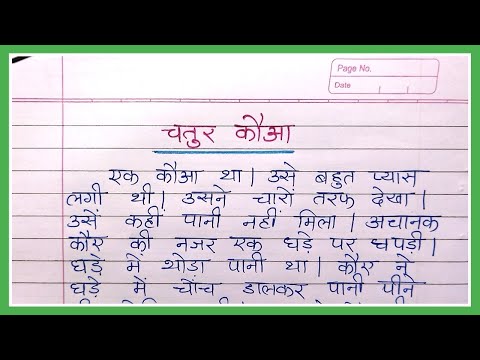 Page No.
Date
चतुर कौआ
एक कौआ था। उसे बहुत प्यास
लगी थी। उसने चारों तरफ देखा।
उसें कहीं पानी नहीं मिला। अचानक
कौए की नजर एक घड़े पर धपड़ी।
घड़े में थोड़ा पानी था। कौए ने
घड़े में चोंच डालकर पानी पीने